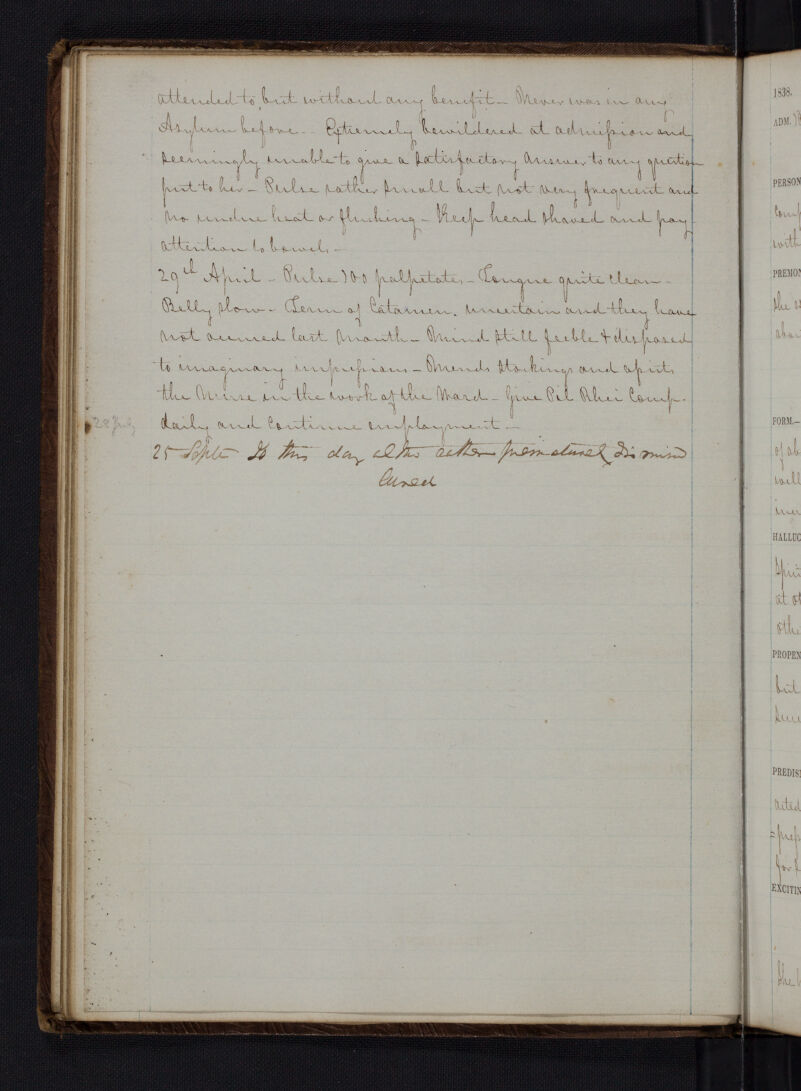 attended to but without any benefit - Never was in any
Asylum before - Extremely bewildered at admission and
seemingly unable to give a satisfactory answer to any question
put to her - Pulse rather small but not very frequent and
no undue heat or flushing - Keep head shaved and pay
attention to bowels -
29th April - Pulse 100 palpitates - Tongue quite clean -
Belly slow - Term of Catamen. uncertain and they have
not occurred last month - Mind still feeble & disposed
to imaginary impressions - Mends stockings and assists
the Nurse in the work of the Ward - Give Pil Rhei Comp.
daily and continue employment -
28 July
25 Septr Is this day rather prematurely
Cured
1838.
ADM.
PERSON
with
PREMO
the
FORM.-
of ab
will
HALLUC
at
othe
PROPEN
but
PREDIS
acted
for
EXCITIN
She